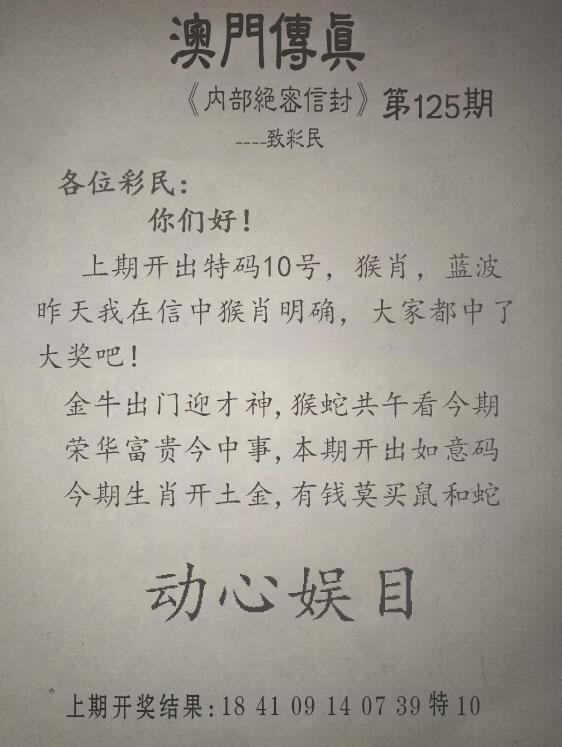 澳門傳眞
《内部絕密信封》第125期
----致彩民
各位彩民:
你们好!
上期开出特码10号,猴肖,蓝波
昨天我在信中猴肖明确,大家都中了
大奖吧!
金牛出门迎才神,猴蛇共午看今期
荣华富贵今中事,本期开出如意码
今期生肖开土金,有钱莫买鼠和蛇
动心娱目
上期开奖结果:18 41 09 14 07 39 特10